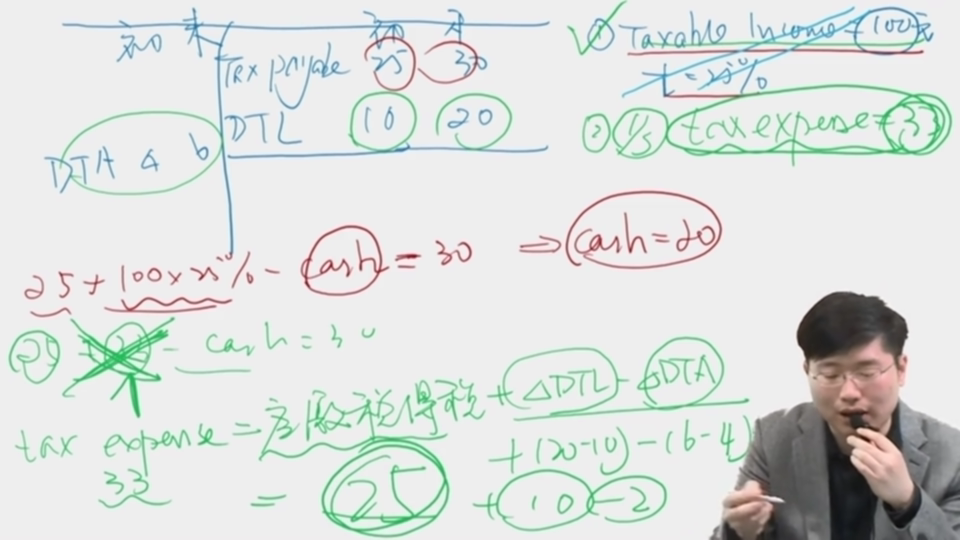 初 末 初 末
Tax payable 25 30
DTL 10 20
DTA 4 6
① Taxable Income = 100元
t = 25%
② I/S tax expense = 33
25 + 100 × 25% - cash = 30 ⇒ cash = 20
25 - cash = 30
tax expense = 应缴税得税 + ΔDTL - ΔDTA
33
+ (20-10) - (6-4)
= 25 + 10 - 2